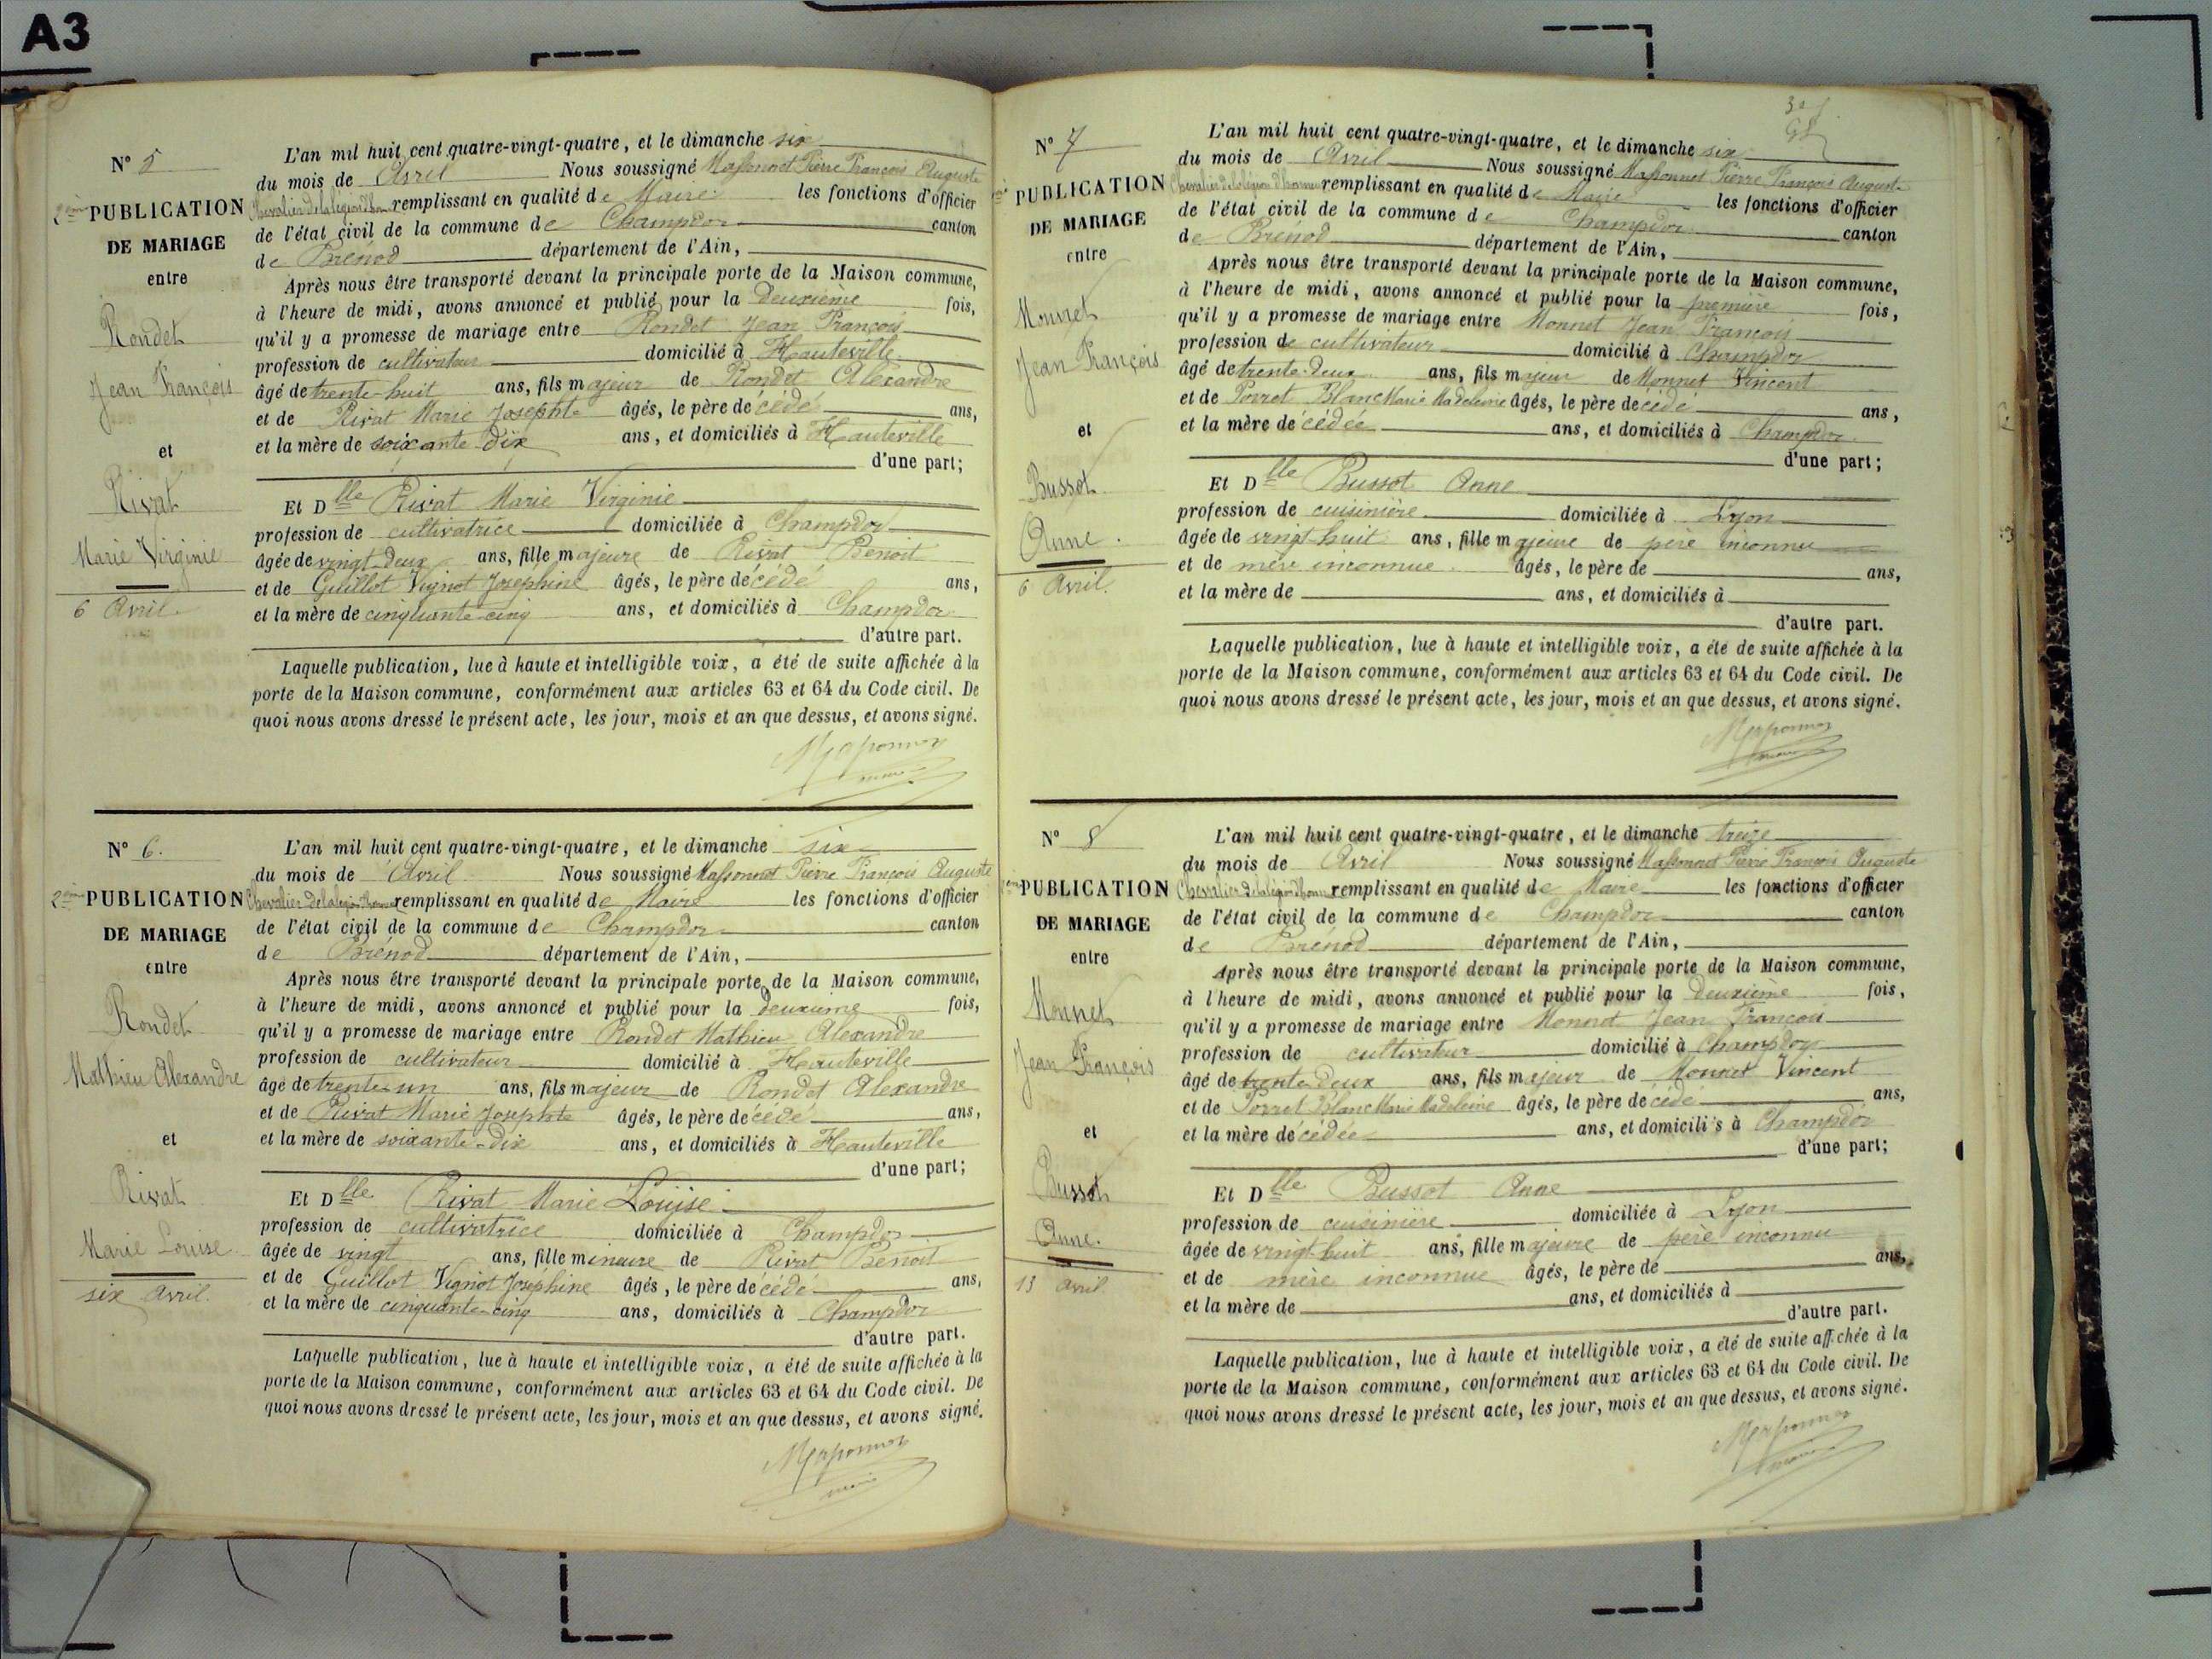 A3
N° 5
2ème PUBLICATION
DE MARIAGE
entre
Rondet
Jean François
et
Rivat
Marie Virginie
6 Avril.
L'an mil huit cent quatre-vingt-quatre, et le dimanche six
du mois de Avril Nous soussigné Massonnet Pierre François Auguste
Chevalier de la légion d'hon remplissant en qualité de Maire les fonctions d'officier
de l'état civil de la commune de Champdor canton
de Brénod département de l'Ain,
Après nous être transporté devant la principale porte de la Maison commune,
à l'heure de midi, avons annoncé et publié pour la Deuxième fois,
qu'il y a promesse de mariage entre Rondet Jean François
profession de cultivateur domicilié à Hauteville
âgé de trente-huit ans, fils majeur de Rondet Alexandre
et de Rivat Marie Josephte âgés, le père décédé ans,
et la mère de soixante-dix ans, et domiciliés à Hauteville
d'une part;
Et Dlle Rivat Marie Virginie
profession de cultivatrice domiciliée à Champdor
âgée de vingt-deux ans, fille majeure de Rivat Benoit
et de Guillot Vignot Josephine âgés, le père décédé ans,
et la mère de cinquante-cinq ans, et domiciliés à Champdor
d'autre part.
Laquelle publication, lue à haute et intelligible voix, a été de suite affichée à la
porte de la Maison commune, conformément aux articles 63 et 64 du Code civil. De
quoi nous avons dressé le présent acte, les jour, mois et an que dessus, et avons signé.
N° 6.
2ème PUBLICATION
DE MARIAGE
entre
Rondet
Mathieu Alexandre
et
Rivat
Marie Louise
six avril.
L'an mil huit cent quatre-vingt-quatre, et le dimanche six
du mois de Avril Nous soussigné Massonnet Pierre François Auguste
Chevalier de la légion d'honneur remplissant en qualité de Maire les fonctions d'officier
de l'état civil de la commune de Champdor canton
de Brénod département de l'Ain,
Après nous être transporté devant la principale porte de la Maison commune,
à l'heure de midi, avons annoncé et publié pour la deuxième fois,
qu'il y a promesse de mariage entre Rondet Mathieu Alexandre
profession de cultivateur domicilié à Hauteville
âgé de trente-un ans, fils majeur de Rondet Alexandre
et de Rivat Marie Josephte âgés, le père décédé ans,
et la mère de soixante-dix ans, et domiciliés à Hauteville
d'une part;
Et Dlle Rivat Marie Louise
profession de cultivatrice domiciliée à Champdor
âgée de vingt ans, fille mineure de Rivat Benoit
et de Guillot Vignot Joséphine âgés, le père décédé ans,
et la mère de cinquante-cinq ans, domiciliés à Champdor
d'autre part.
Laquelle publication, lue à haute et intelligible voix, a été de suite affichée à la
porte de la Maison commune, conformément aux articles 63 et 64 du Code civil. De
quoi nous avons dressé le présent acte, les jour, mois et an que dessus, et avons signé.
N° 7
PUBLICATION
DE MARIAGE
entre
Monnet
Jean François
et
Bussot
Anne.
6 Avril.
L'an mil huit cent quatre-vingt-quatre, et le dimanche six
du mois de Avril Nous soussigné Massonnet Pierre François Auguste
Chevalier de la légion d'honneur remplissant en qualité de Maire les fonctions d'officier
de l'état civil de la commune de Champdor canton
de Brénod département de l'Ain,
Après nous être transporté devant la principale porte de la Maison commune,
à l'heure de midi, avons annoncé et publié pour la première fois,
qu'il y a promesse de mariage entre Monnet Jean François
profession de cultivateur domicilié à Champdor
âgé de trente-deux ans, fils majeur de Monnet Vincent
et de Porret Blanc Marie Madeleine âgés, le père décédé ans,
et la mère décédée ans, et domiciliés à Champdor
d'une part;
Et Dlle Bussot Anne
profession de cuisinière domiciliée à Lyon
âgée de vingt huit ans, fille majeure de père inconnu
et de mère inconnue âgés, le père de ans,
et la mère de ans, et domiciliés à
d'autre part.
Laquelle publication, lue à haute et intelligible voix, a été de suite affichée à la
porte de la Maison commune, conformément aux articles 63 et 64 du Code civil. De
quoi nous avons dressé le présent acte, les jour, mois et an que dessus, et avons signé.
N° 8
PUBLICATION
DE MARIAGE
entre
Monnet
Jean François
et
Bussot
Anne.
13 avril.
L'an mil huit cent quatre-vingt-quatre, et le dimanche treize
du mois de Avril Nous soussigné Massonnet Pierre François Auguste
Chevalier de la légion d'honn remplissant en qualité de Maire les fonctions d'officier
de l'état civil de la commune de Champdor canton
de Brénod département de l'Ain,
Après nous être transporté devant la principale porte de la Maison commune,
à l'heure de midi, avons annoncé et publié pour la Deuxième fois,
qu'il y a promesse de mariage entre Monnet Jean François
profession de cultivateur domicilié à Champdor
âgé de trente-deux ans, fils majeur de Monnet Vincent
et de Porret Blanc Marie Madeleine âgés, le père décédé ans,
et la mère décédée ans, et domiciliés à Champdor
d'une part;
Et Dlle Bussot Anne
profession de cuisinière domiciliée à Lyon
âgée de vingt huit ans, fille majeure de père inconnu
et de mère inconnue âgés, le père de ans,
et la mère de ans, et domiciliés à
d'autre part.
Laquelle publication, lue à haute et intelligible voix, a été de suite affichée à la
porte de la Maison commune, conformément aux articles 63 et 64 du Code civil. De
quoi nous avons dressé le présent acte, les jour, mois et an que dessus, et avons signé.